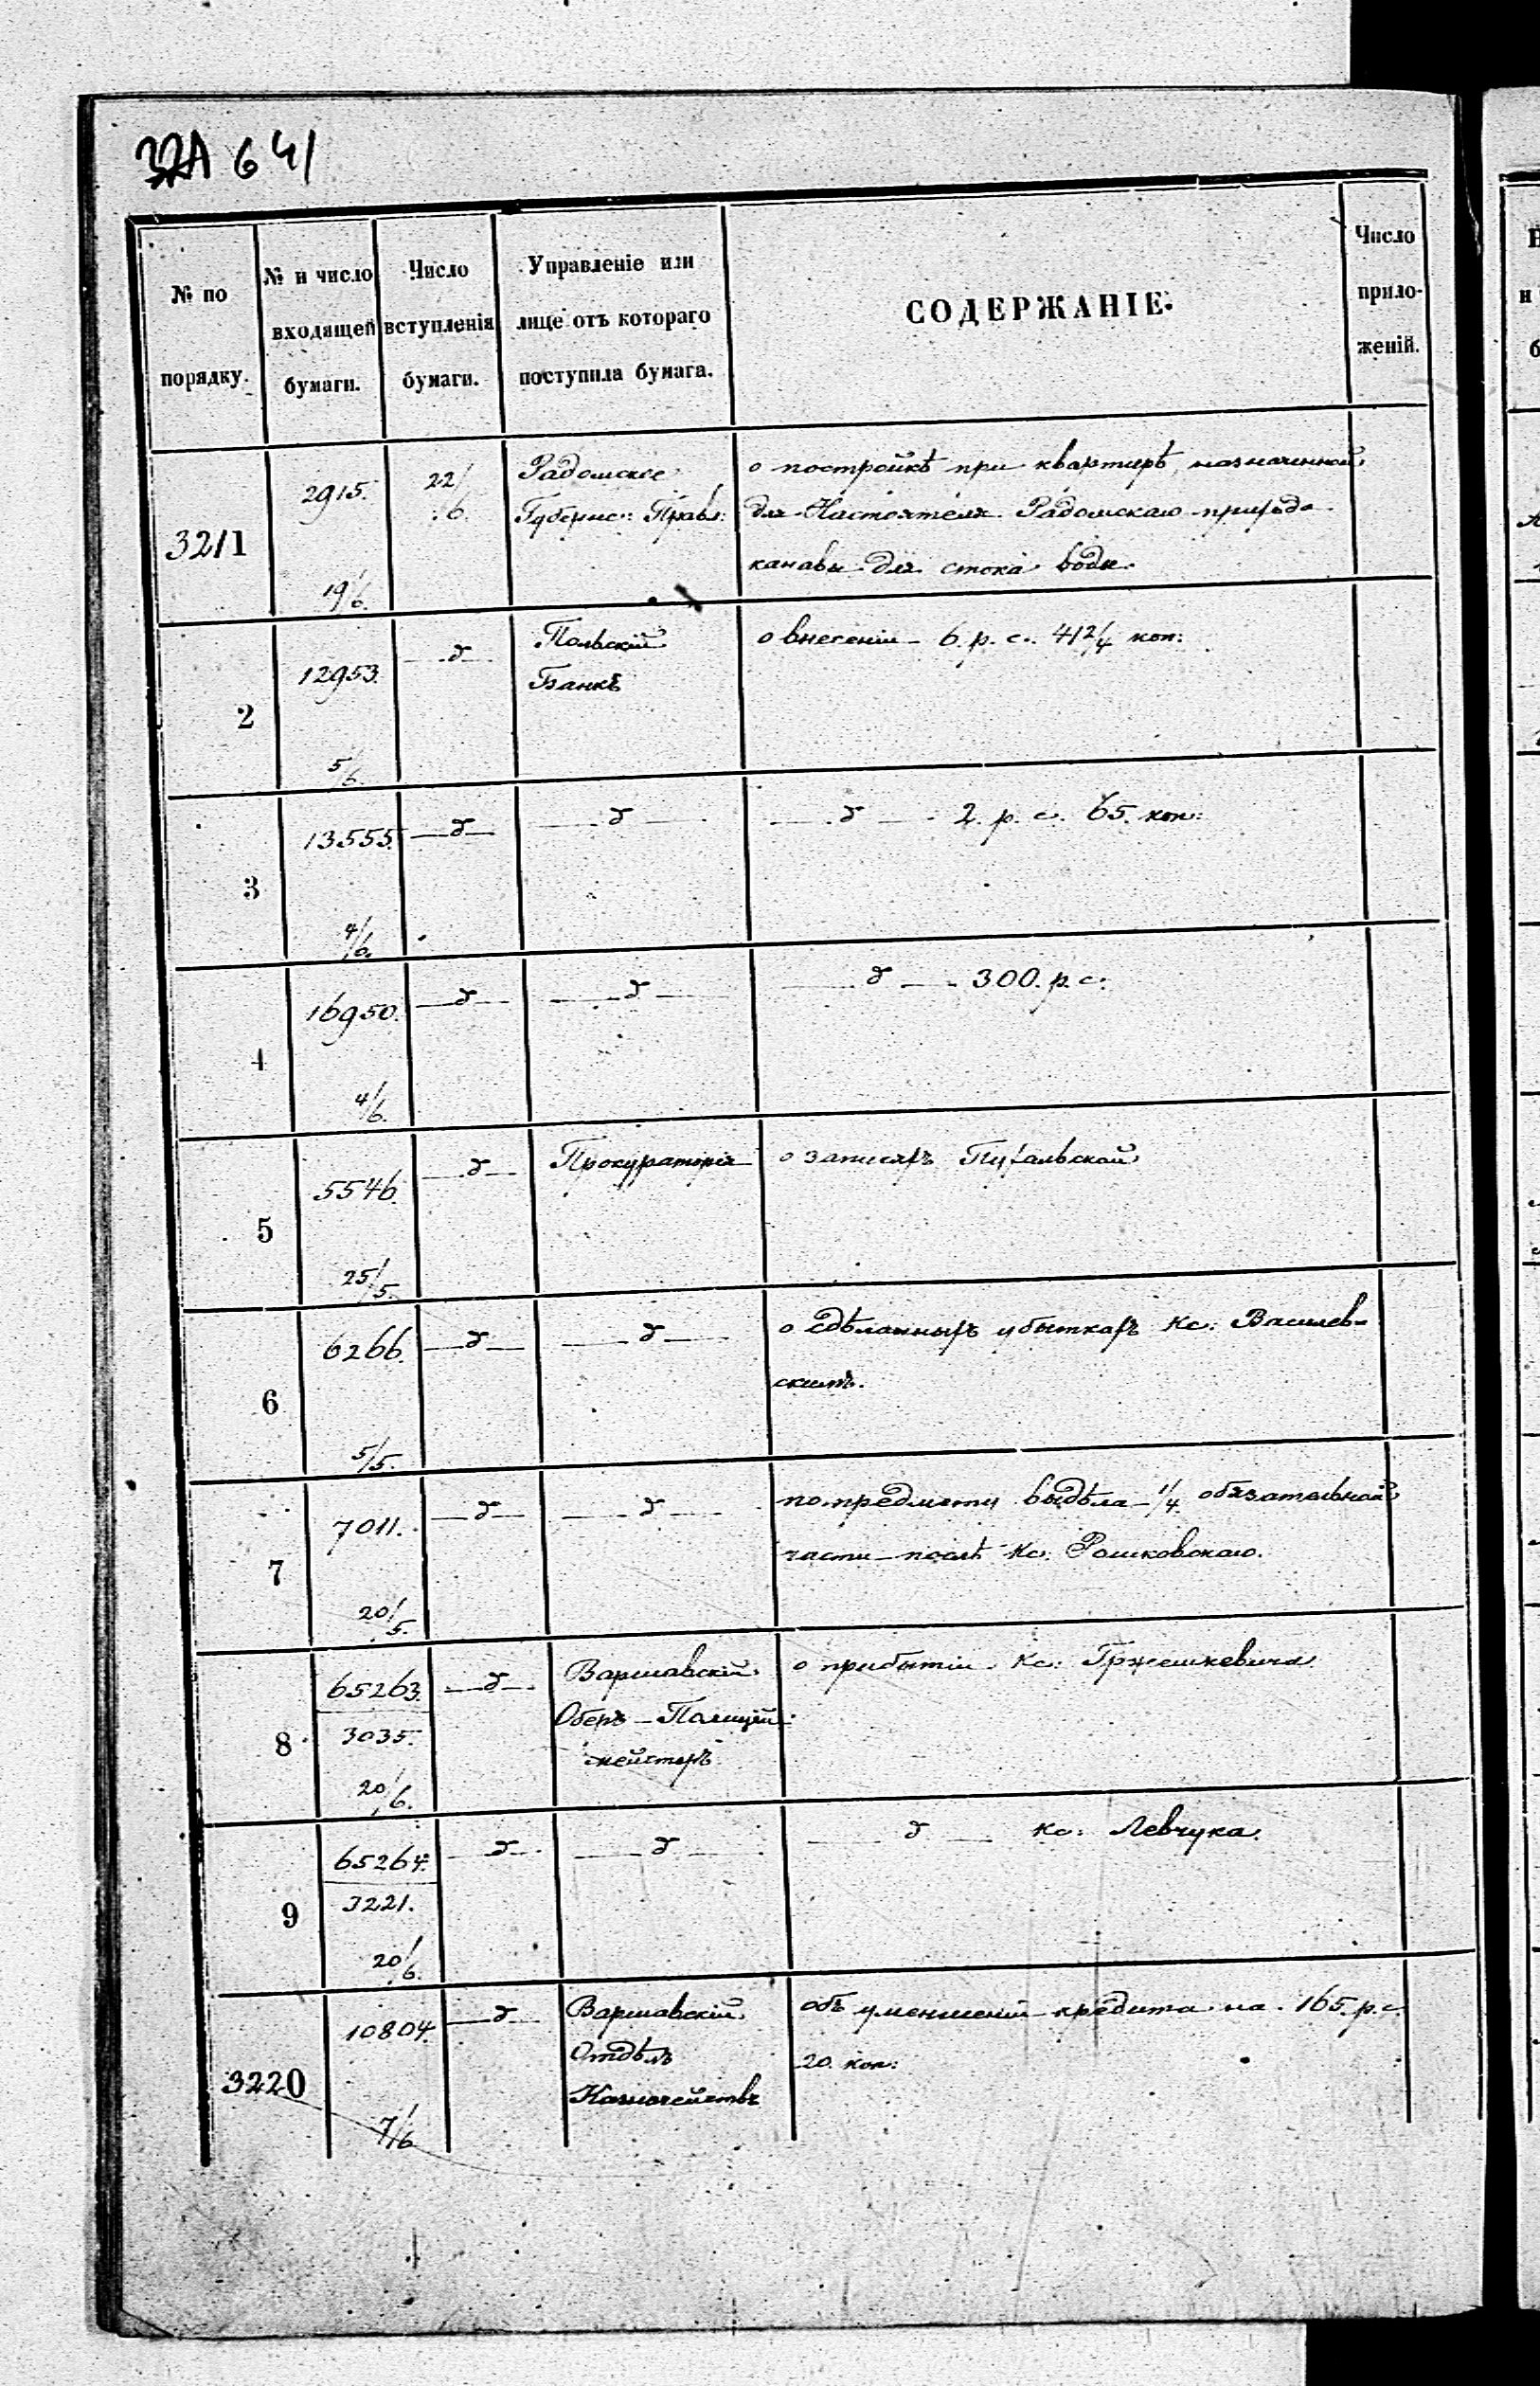 641
№ по порядку.
№ и число входящей бумаги.
Число вступленія бумаги.
Управленіе или лице отъ котораго поступила бумага.
СОДЕРЖАНІЕ.
Число приложеній.
3211 2915. 19/6. 22/6. Радомское Губернс: Правл: о постройкѣ при квартирѣ, назначенной
для Настоятеля Радомскаго прихода
канавы для стока воды.
2 12953. 5/6. — д — Польскій Банкъ о внесеніи 6. р. с. 41 2/4 коп:
3 13555. 4/6. — д — — д — — д — 2. р. с. 65. коп:
4 16950. 4/6. — д — — д — — д — 300. р. с.
5 5546. 25/5. — д — Прокураторія о записяхъ
6 6266. 5/5. — д — — д — о сдѣланныхъ убыткахъ Кс: Василев-
скимъ.
7 7011. 20/5. — д — — д — по предмету выдѣла 1/4 обязательной
части послѣ Кс: Рошковскаго.
8 65263. 3035. 20/6. — д — Варшавскій Оберъ-Полицій мейстеръ о прибытіи Кс: Гржешкевича
9 65264. 3221. 20/6. — д — — д — — д — Кс: Левчука.
3220 10804. 7/6 — д — Варшавскій Отдѣлъ Казначействъ объ уменшеніи кредита на 165. р. с.
20. коп: